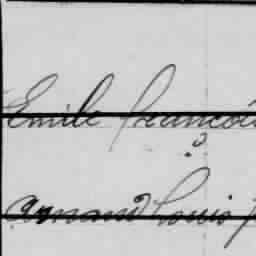 Emile Francois
Armand Louis